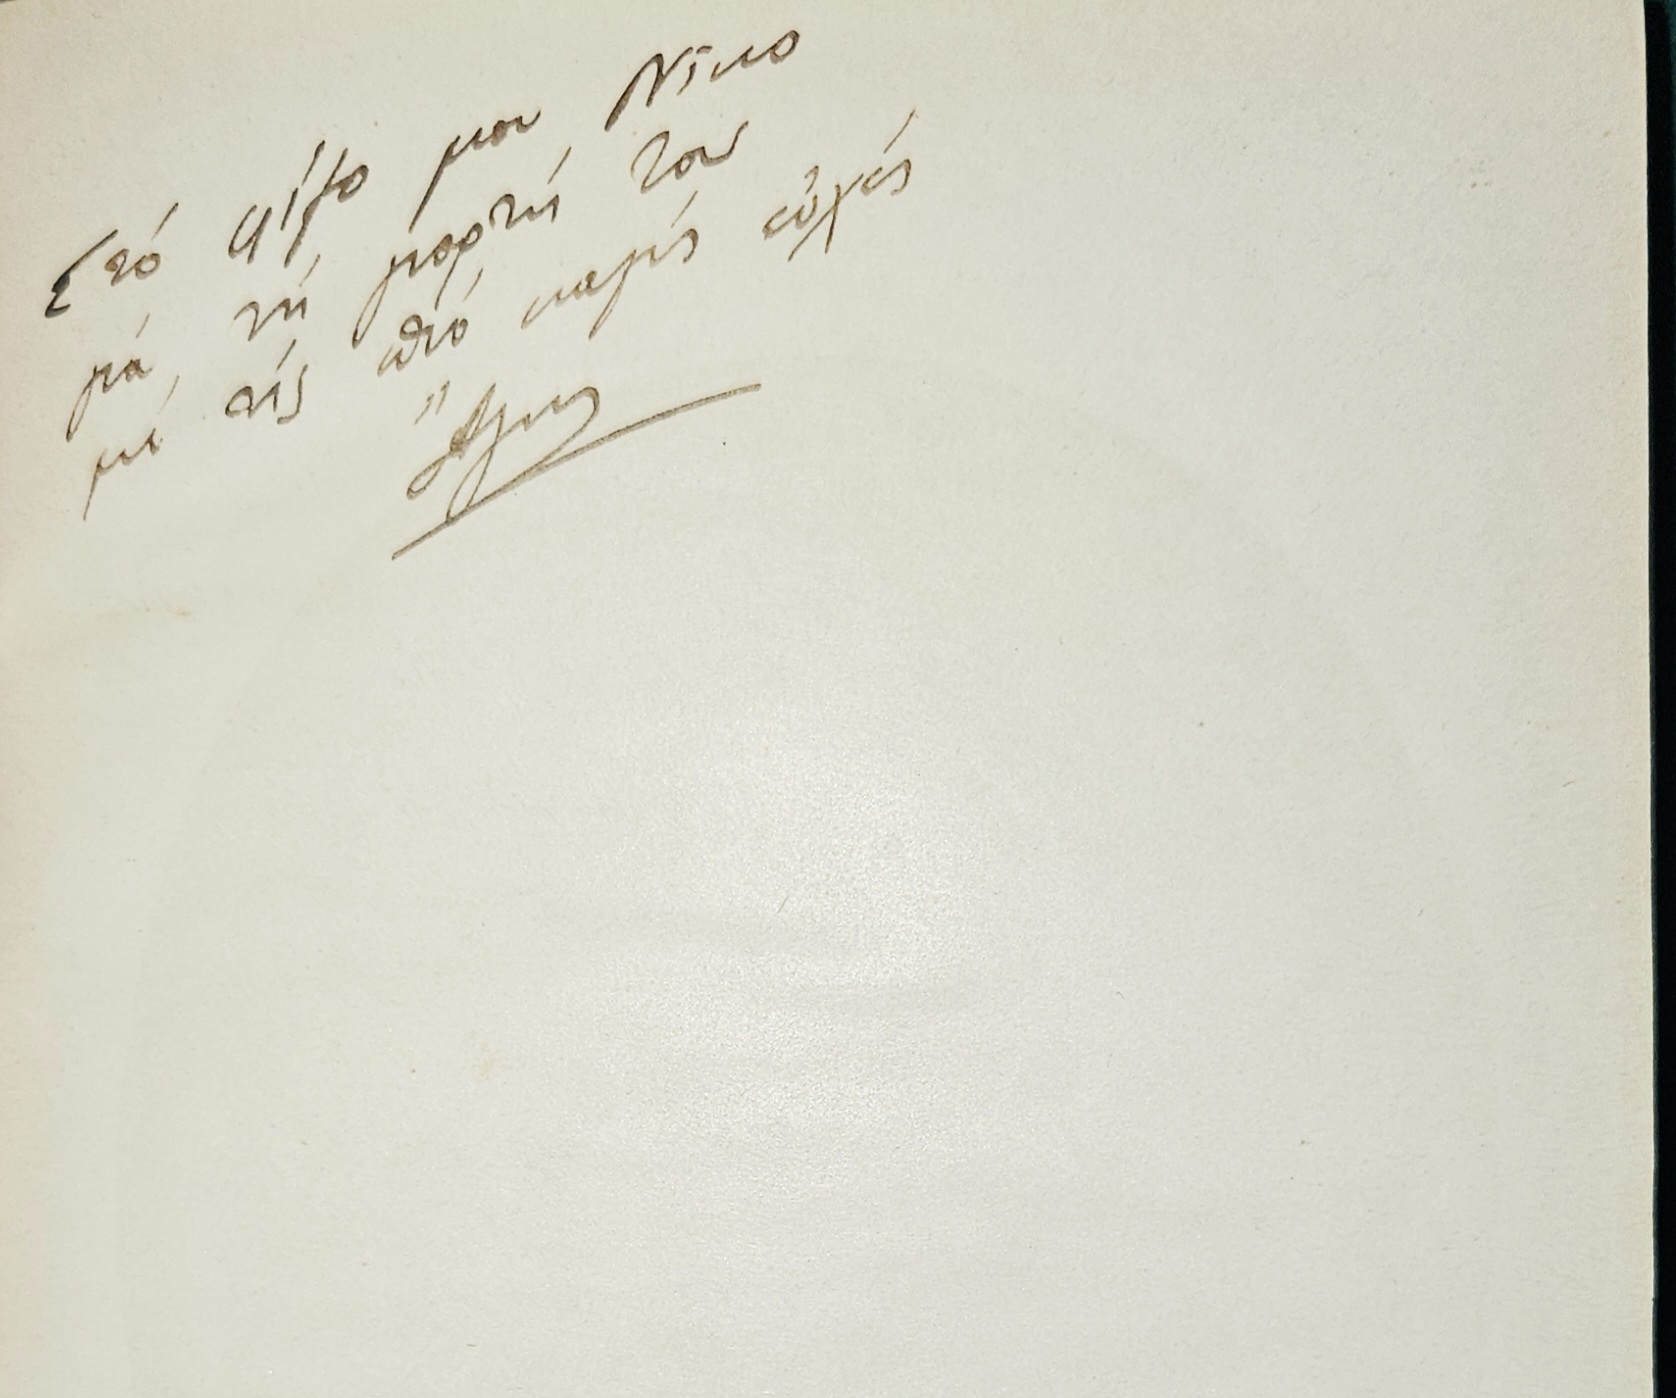 Στό φίλο μου Νίκο
γιά τή γιορτή του
μέ τίς πιό καλές εὐχές
Ἄλκης